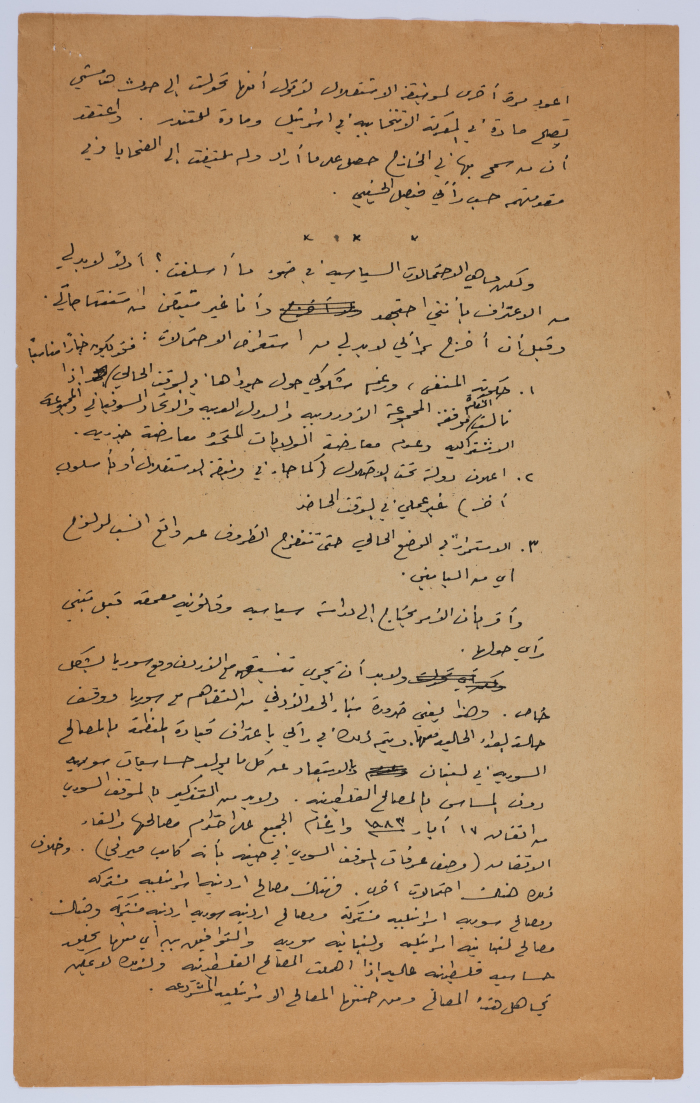 اعود مرة أخرى لوثيقة الاستقلال لأقول أنها تحولت إلى حدث هامشي
يصلح مادة في المعركة الانتخابية في اسرائيل ومادة للتندر . واعتقد
أن من سمح بها في الخارج حصل على ما أراد ولم يلتفت إلى الضحايا وفي
مقدمتهم حسب رأيي فيصل الحسيني .
× × ×
ولكن ما هي الاحتمالات السياسية في ضوء ما أسلفت ؟ أولاً لابد لي
من الاعتراف بأنني اجتهد وأنا غير متيقن من استنتاجاتي .
وقبل أن أخرج برأيي لابد لي من استعراض الاحتمالات : فقد يكون خياراً مناسباً
١. حكومة المنفى ، ورغم شكوكي حول جدواها في الوقت الحالي إذا
نالت موقف المجموعة الأوروبية والدول العربية والاتحاد السوفياتي والمجموعة
الاشتراكية وعدم معارضة الولايات المتحدة معارضة جذرية .
٢. اعلان دولة تحت الاحتلال (كما جاء في وثيقة الاستقلال أو بأسلوب
آخر) غير عملي في الوقت الحاضر
٣. الاستمرار في الوضع الحالي حتى تتضح الظروف عن واقع انسب لولوج
أي من البابين .
وأقر بأن الأمر يحتاج إلى دراسة سياسية وقانونية معمقة قبل تبني
رأي حولها .
ولابد أن يجري تنسيق مع الأردن ومع سوريا بشكل
خاص . وهذا يعني ضرورة تبني الحد الأدنى من التفاهم مع سوريا ووقف
حالة العداء الحالية معها. ويتم ذلك في رأيي باعتراف قيادة المنظمة بالمصالح
السورية في لبنان والابتعاد عن كل ما يولد حساسيات سورية
دون المساس بالمصالح الفلسطينية . ولابد من التذكير بالموقف السوري
من اتفاق ١٧ أيار ١٩٨٣ وارغام الجميع على احترام مصالحها والغاء
الاتفاق (وصف عرفات الموقف السوري في حينه بأنه كامب ) . وخلاف
ذلك هناك احتمالات أخرى . فهناك مصالح اردنية اسرائيلية مشتركة
ومصالح سورية اسرائيلية مشتركة ومصالح اردنية سورية مشتركة وهناك
مصالح لبنانية اسرائيلية ولبنانية سورية والتوافق بين أي منها يخلق
حساسية فلسطينية عالية إذا أهملت المصالح الفلسطينية ولذلك لا يمكن
تجاهل هذه المصالح ومن ضمنها المصالح الاسرائيلية المشروعة .